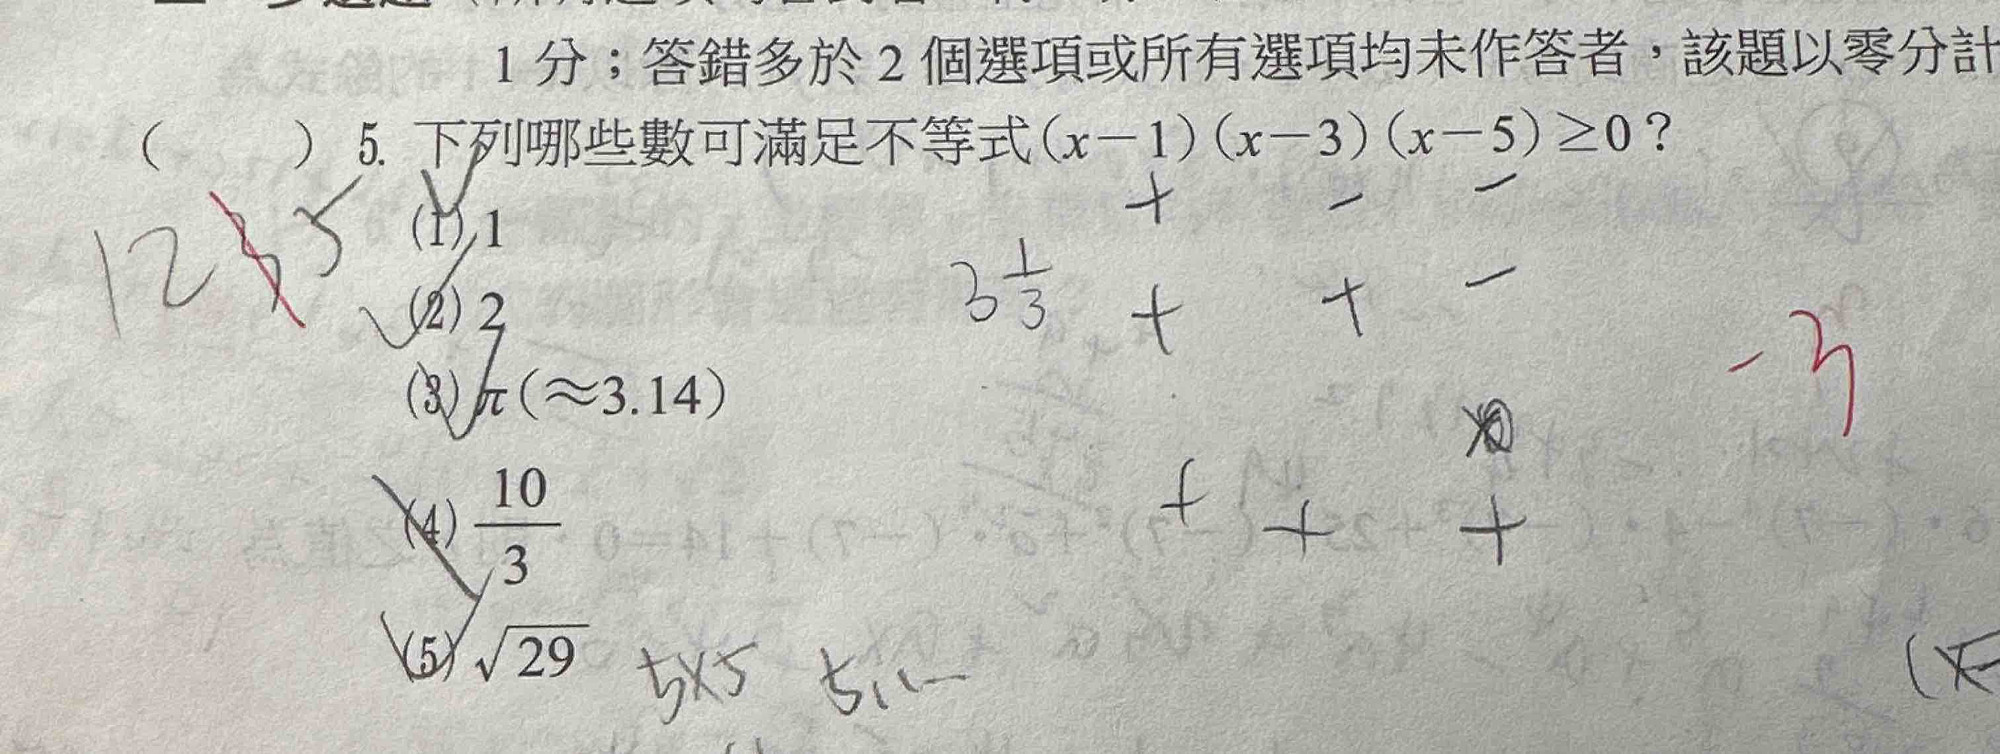 1分；答錯多於2個選項或所有選項均未作答者，該題以零分計
（　　）5. 下列哪些數可滿足不等式(x－1)(x－3)(x－5)≥0？
+ － －
1235
(1) 1
3 1/3 + + －
(2) 2
-3
(3) π(≈3.14)
+ + +
(4) 10/3
(5) √29 5×5 5.